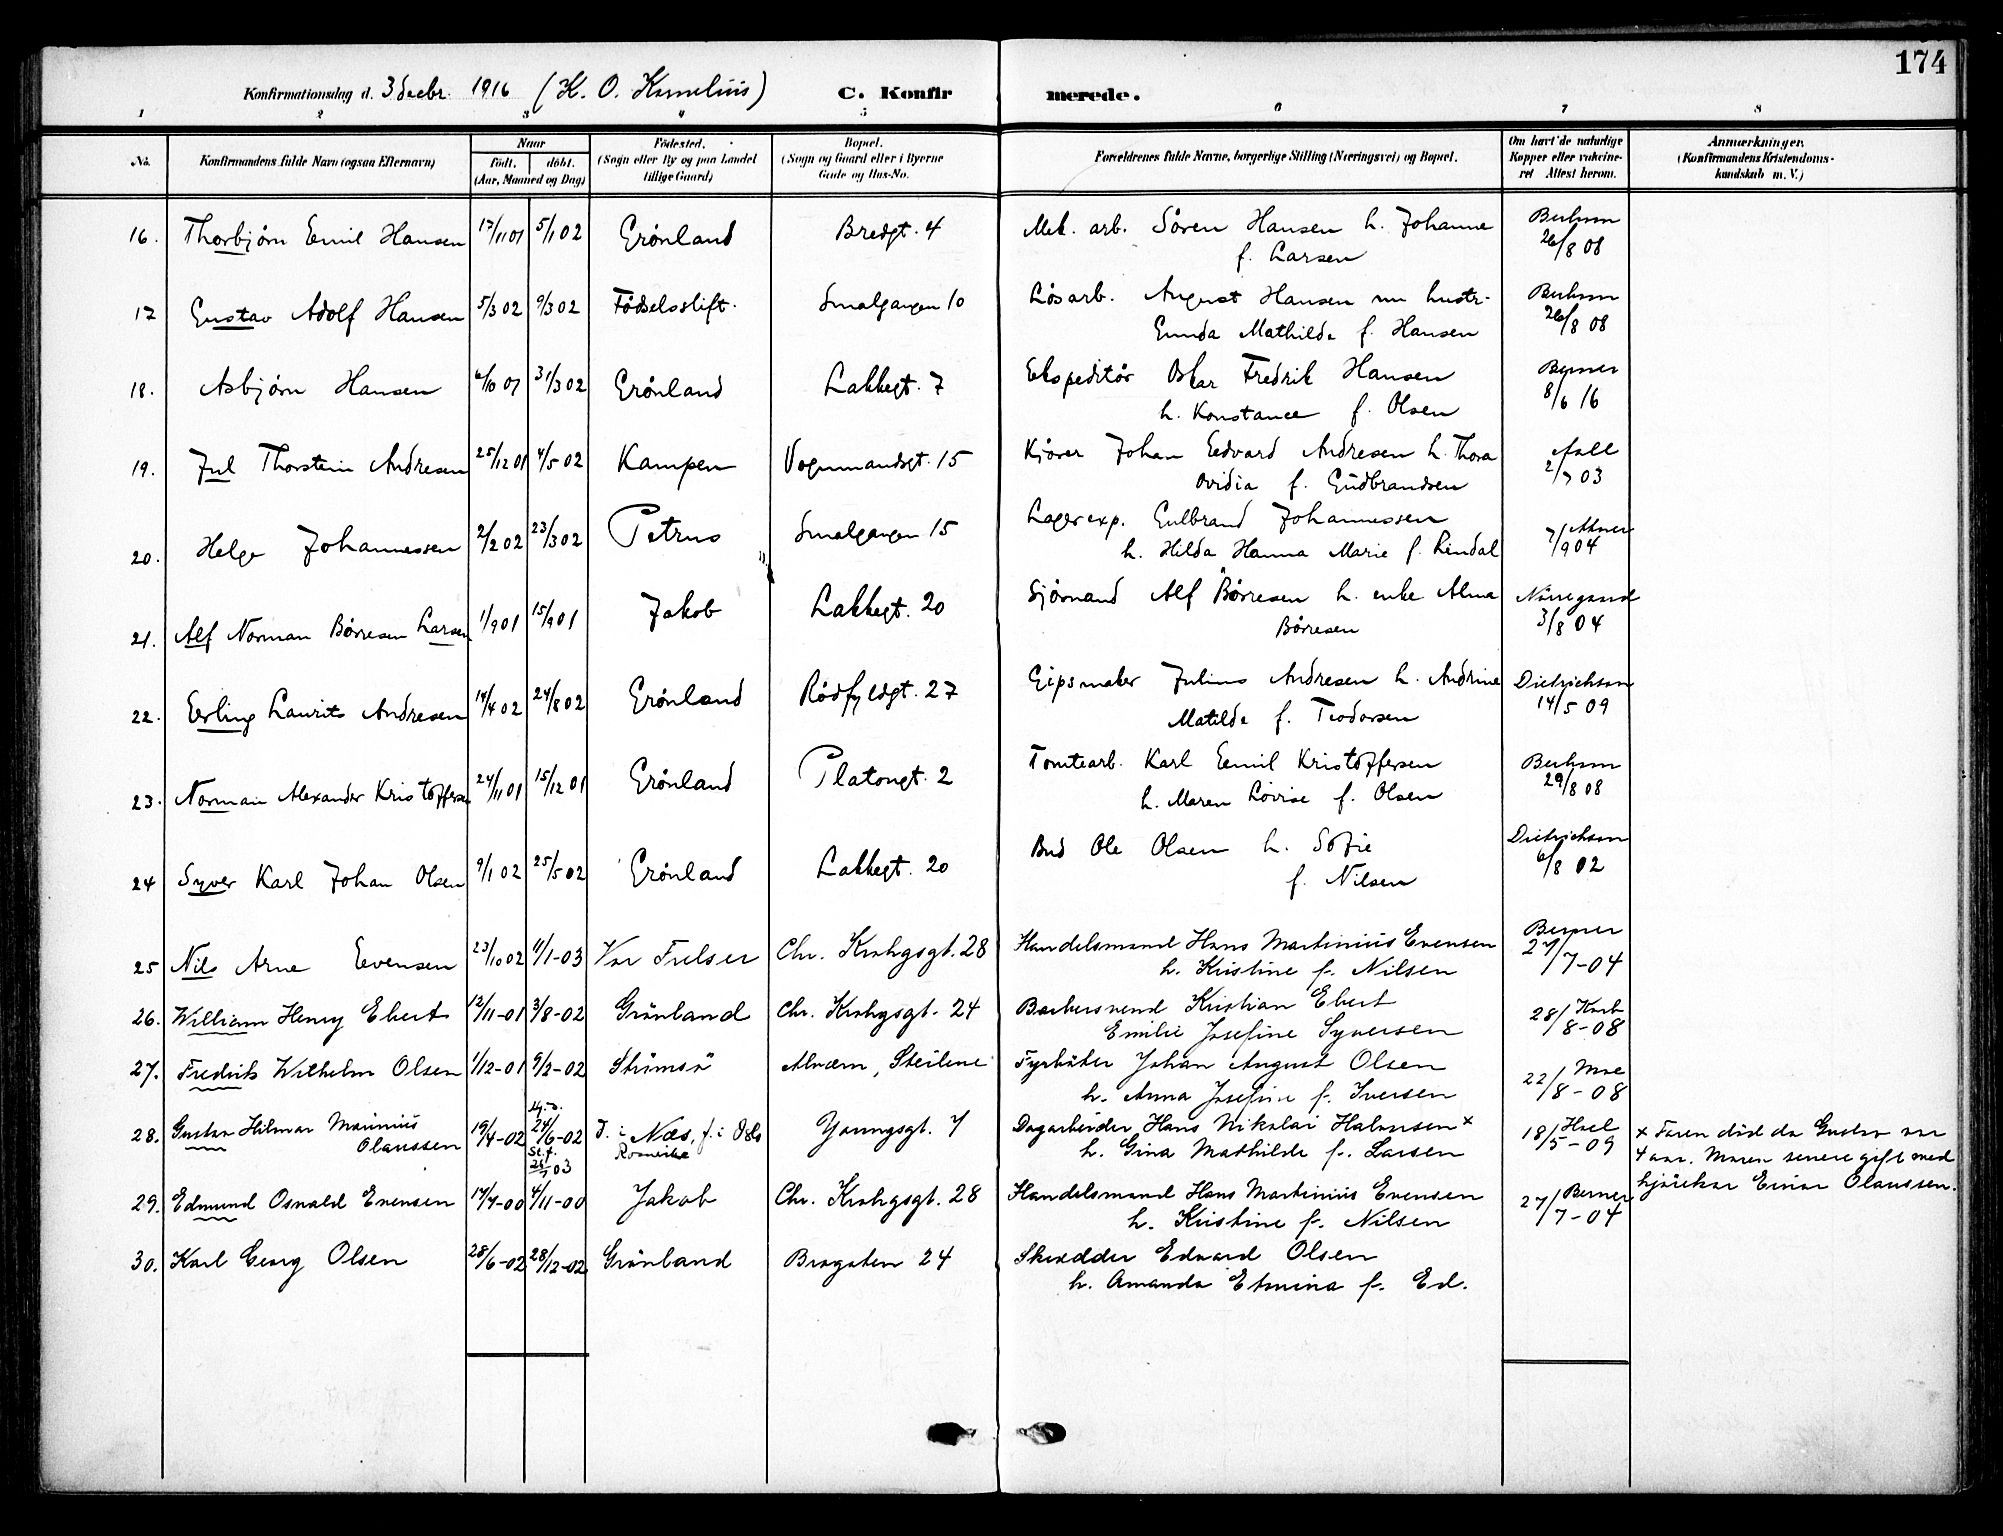 174
Konfirmationsdag d. 3 decbr. 1916 (K. O. Kornelius) C. Konfirmerede.
1 2 3 4 5 6 7 8
No. Konfirmandens fulde Navn (ogsaa Efternavn) Naar født. døbt. (Aar, Maaned og Dag) Fødested. (Sogn eller By og paa Landet tillige Gaard) Bopæl. (Sogn og Gaard eller i Byerne Gade og Hus-No. Forældrenes fulde Navne, borgerlige Stilling (Næringsvei) og Bopæl. Om havt de naturlige Kopper eller vakcineret. Attest herom. Anmærkninger. (Konfirmandens Kristendomskundskab m. V.)
16. Thorbjørn Emil Hansen 17/11 01 5/1 02 Grønland Bredgt. 4 Mek. arb. Sören Hansen h. Johanne
f. Larsen 26/8 08
17 Gustav Adolf Hansen 5/3 02 9/3 02 Födselsstift. Smalgangen 10 Lösarb. August Hansen
Gunda Mathilde f. Hansen 26/8 08
18. Asbjørn Hansen 31/3 02 Grønland Lakkegt. 7 Ekspeditör Oskar Fredrik Hansen Berner
h. Konstance f. Olsen 8/6 16
19. Jul Thorstein Andresen 25/12 01 4/5 02 Kampen Vognmandsgt. 15 Kjörer Johan Edvard Andresen h. Thora Aall
Ovidia f. Gudbrandsen 2/7 03
20. Helge Johannessen 2/2 02 23/3 02 Petrus Smalgangen 15 Lagerexp. Gulbrand Johannessen
h. Hilda Hanna Marie f. Lindal 7/9 04
21. Alf Norman Børresen Larsen 1/9 01 15/9 01 Jakob Lakkegt. 20 Sjömand Alf Börresen h. enke Alma Nörregaard
Börresen 3/8 04
22. Erling Laurits Andresen 14/4 02 24/8 02 Grønland Rødfyldgt. 27 Gipsmaker Julius Andresen h. Andrine Dietrichson
Matilde f. Teodorsen 14/5 09
23. Norman Alexander Kristoffersen 24/11 01 15/12 01 Grønland Platousgt. 2 Tomtearb. Karl Emil Kristoffersen
h. Maren Lovise f. Olsen 29/8 08
24 Syver Karl Johan Olsen 9/1 02 25/5 02 Grønland Lakkegt. 20 Bud Ole Olsen h. Sofie Dietrichson
f. Nilsen 6/8 02
25 Nils Arne Evensen 23/10 02 4/1-03 Vor Frelser Chr. Krohgsgt. 28 Handelsmand Hans Martinius Evensen Berner
h. Kristine f. Nilsen 27/7-04
26. William Henry Ebert 12/11-01 3/8-02 Grönland Chr. Krohgsgt. 24 Barbersvend Kristian Ebert
Emilie Josefine Syversen 28/8-08
27. Fredrik Wilhelm Olsen 1/12-01 9/2-02 Strömsö Alværn, Steilene Fyrböter Johan August Olsen Moe
h. Anna Josefine f. Iversen 22/8-08
28. Gustav Hilmar Marinius
Olaussen 19/4-02 Hj.d. 24/6-02 St. f. 26/7 03 D. i Næs, f. i Oslo Dagarbeider Hans Nikolai Halvorsen x
h. Gina Mathilde f. Larsen 18/5-09
x Faren död da Gustav var
4 aar. Moren senere gift med
Einar Olaussen.
29. Edmund Osvald Evensen 17/7-00 4/11-00 Jakob Chr. Krohgsgt. 28 Handelsmand Hans Martinius Evensen Berner
h. Kristine f. Nilsen 27/7-04
30. Karl Georg Olsen 28/6-02 28/12-02 Grönland Brogaten 24 Skrædder Edvard Olsen
h. Amanda f. Ed.